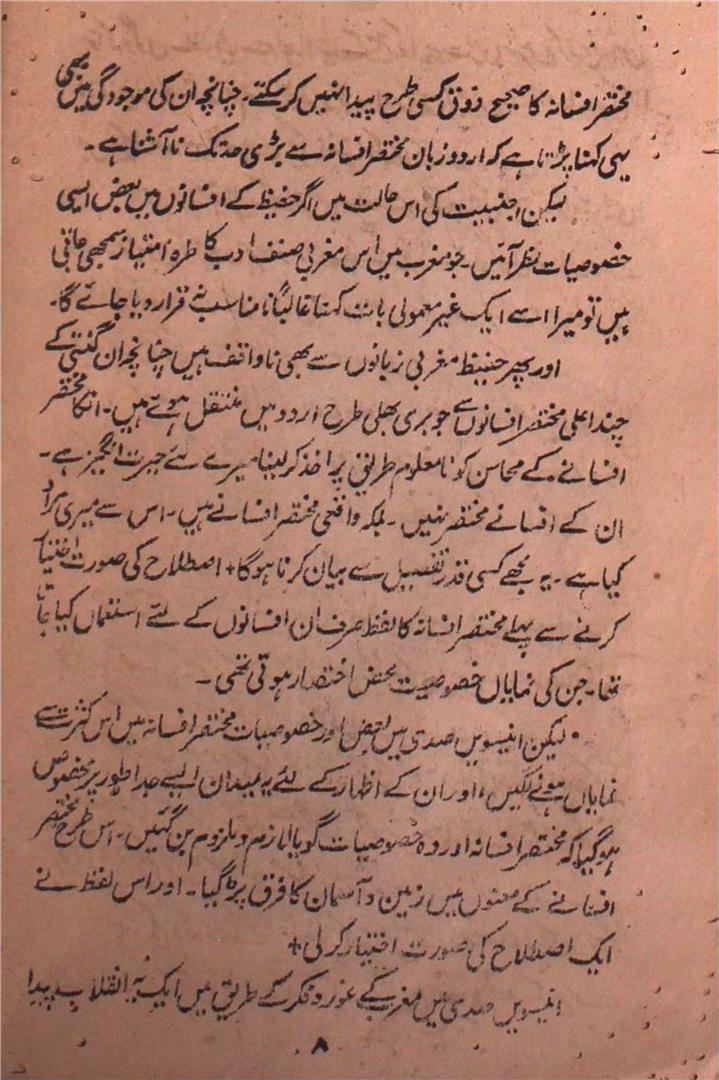 مختصر افسانہ کا صحیح ذوق کسی طرح پیدا نہیں کر سکتے۔ چنانچہ ان کی موجودگی میں بھی
یہی کہنا پڑتا ہے کہ اردو زبان مختصر افسانہ سے بڑی حد تک ناآشنا ہے۔
لیکن اجنبیت کی اس حالت میں اگر حفیظ کے افسانوں میں بعض ایسی
خصوصیات نظر آئیں۔ جو مغرب میں اس مغربی صنف ادب کا طرہ امتیاز سمجھی جاتی
ہیں تو میرا اسے ایک غیر معمولی بات کہنا غالباً نامناسب نہ قرار دیا جائے گا۔
اور پھر حفیظ مغربی زبانوں سے بھی ناواقف ہیں چنانچہ ان گنتی کے
چند اعلیٰ مختصر افسانوں سے جو بری بھلی طرح اردو میں منتقل ہوئے ہیں۔ انکا مختصر
افسانے کے محاسن کو نامعلوم طریق پر اخذ کر لینا میرے لئے حیرت انگیز ہے۔
ان کے افسانے مختصر نہیں۔ بلکہ واقعی مختصر افسانے ہیں۔ اس سے میری مراد
کیا ہے۔ یہ مجھے کسی قدر تفصیل سے بیان کرنا ہوگا+ اصطلاح کی صورت اختیار
کرنے سے پہلے مختصر افسانہ کا لفظ صرف ان افسانوں کے لئے استعمال کیا جاتا
تھا۔ جن کی نمایاں خصوصیت محض اختصار ہوتی تھی۔
لیکن انیسویں صدی میں بعض اور خصوصیات مختصر افسانہ میں اس کثرت سے
نمایاں ہونے لگیں، اور ان کے اظہار کے لئے یہ میدان ایسے جدا طور پر مخصوص
ہوگیا کہ مختصر افسانہ اور وہ خصوصیات گویا لازم و ملزوم بن گئیں۔ اس طرح مختصر
افسانے کے معنوں میں زمین و آسمان کا فرق پڑ گیا۔ اور اس لفظ نے
ایک اصطلاح کی صورت اختیار کر لی+
انیسویں صدی میں مغرب کے غور و فکر کے طریق میں ایک یہ انقلاب پیدا
۸